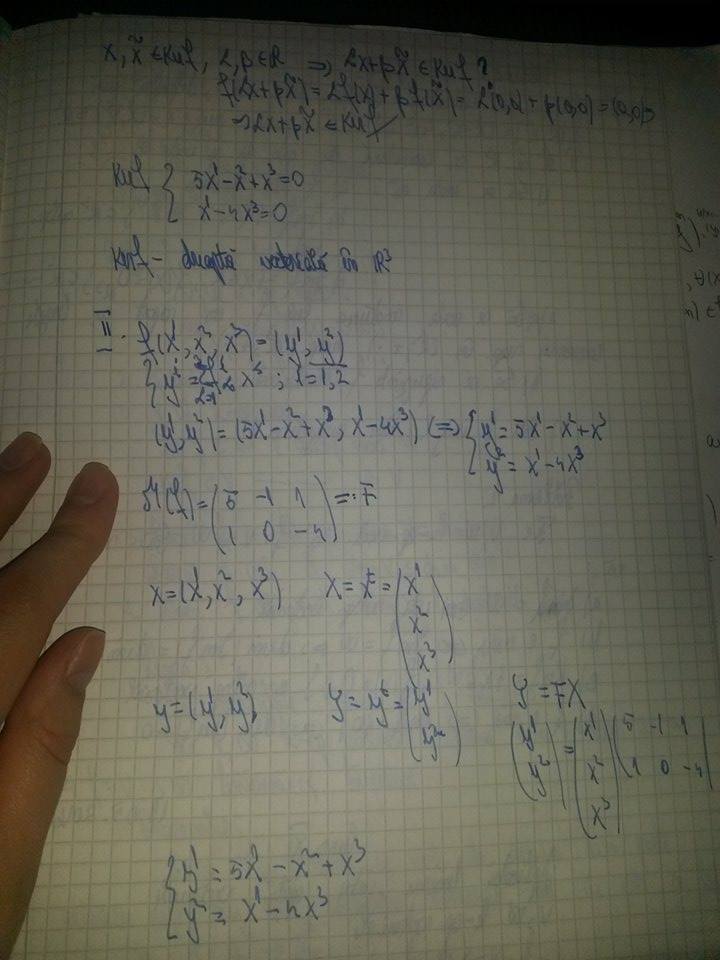 x, x̃ ∈ Ker f, α, β ∈ R ⇒ αx+βx̃ ∈ Ker f ?
f(αx+βx̃) = αf(x) + βf(x̃) = α(0,0) + β(0,0) = (0,0)
⇒ αx+βx̃ ∈ Ker f
Ker f { 5x¹-x²+x³=0
x¹-4x³=0
Ker f - dreaptă vectorială în R³
II. f(x¹, x², x³) = (y¹, y²)
; i=1,2
(y¹, y²) = (5x¹-x²+x³, x¹-4x³) (⇒ { y¹ = 5x¹-x²+x³
y² = x¹-4x³
M(f) = (5 -1 1) =: F
(1 0 -4)
x = (x¹, x², x³) X = xᵗ = (x¹
x²
x³)
Y = FX
y = (y¹, y²) Y = yᵗ = (y¹
y²)
(y¹ y²) = (x¹ x² x³) (5 -1 1
1 0 -4)
{ y¹ = 5x¹ - x² + x³
y² = x¹ - 4x³